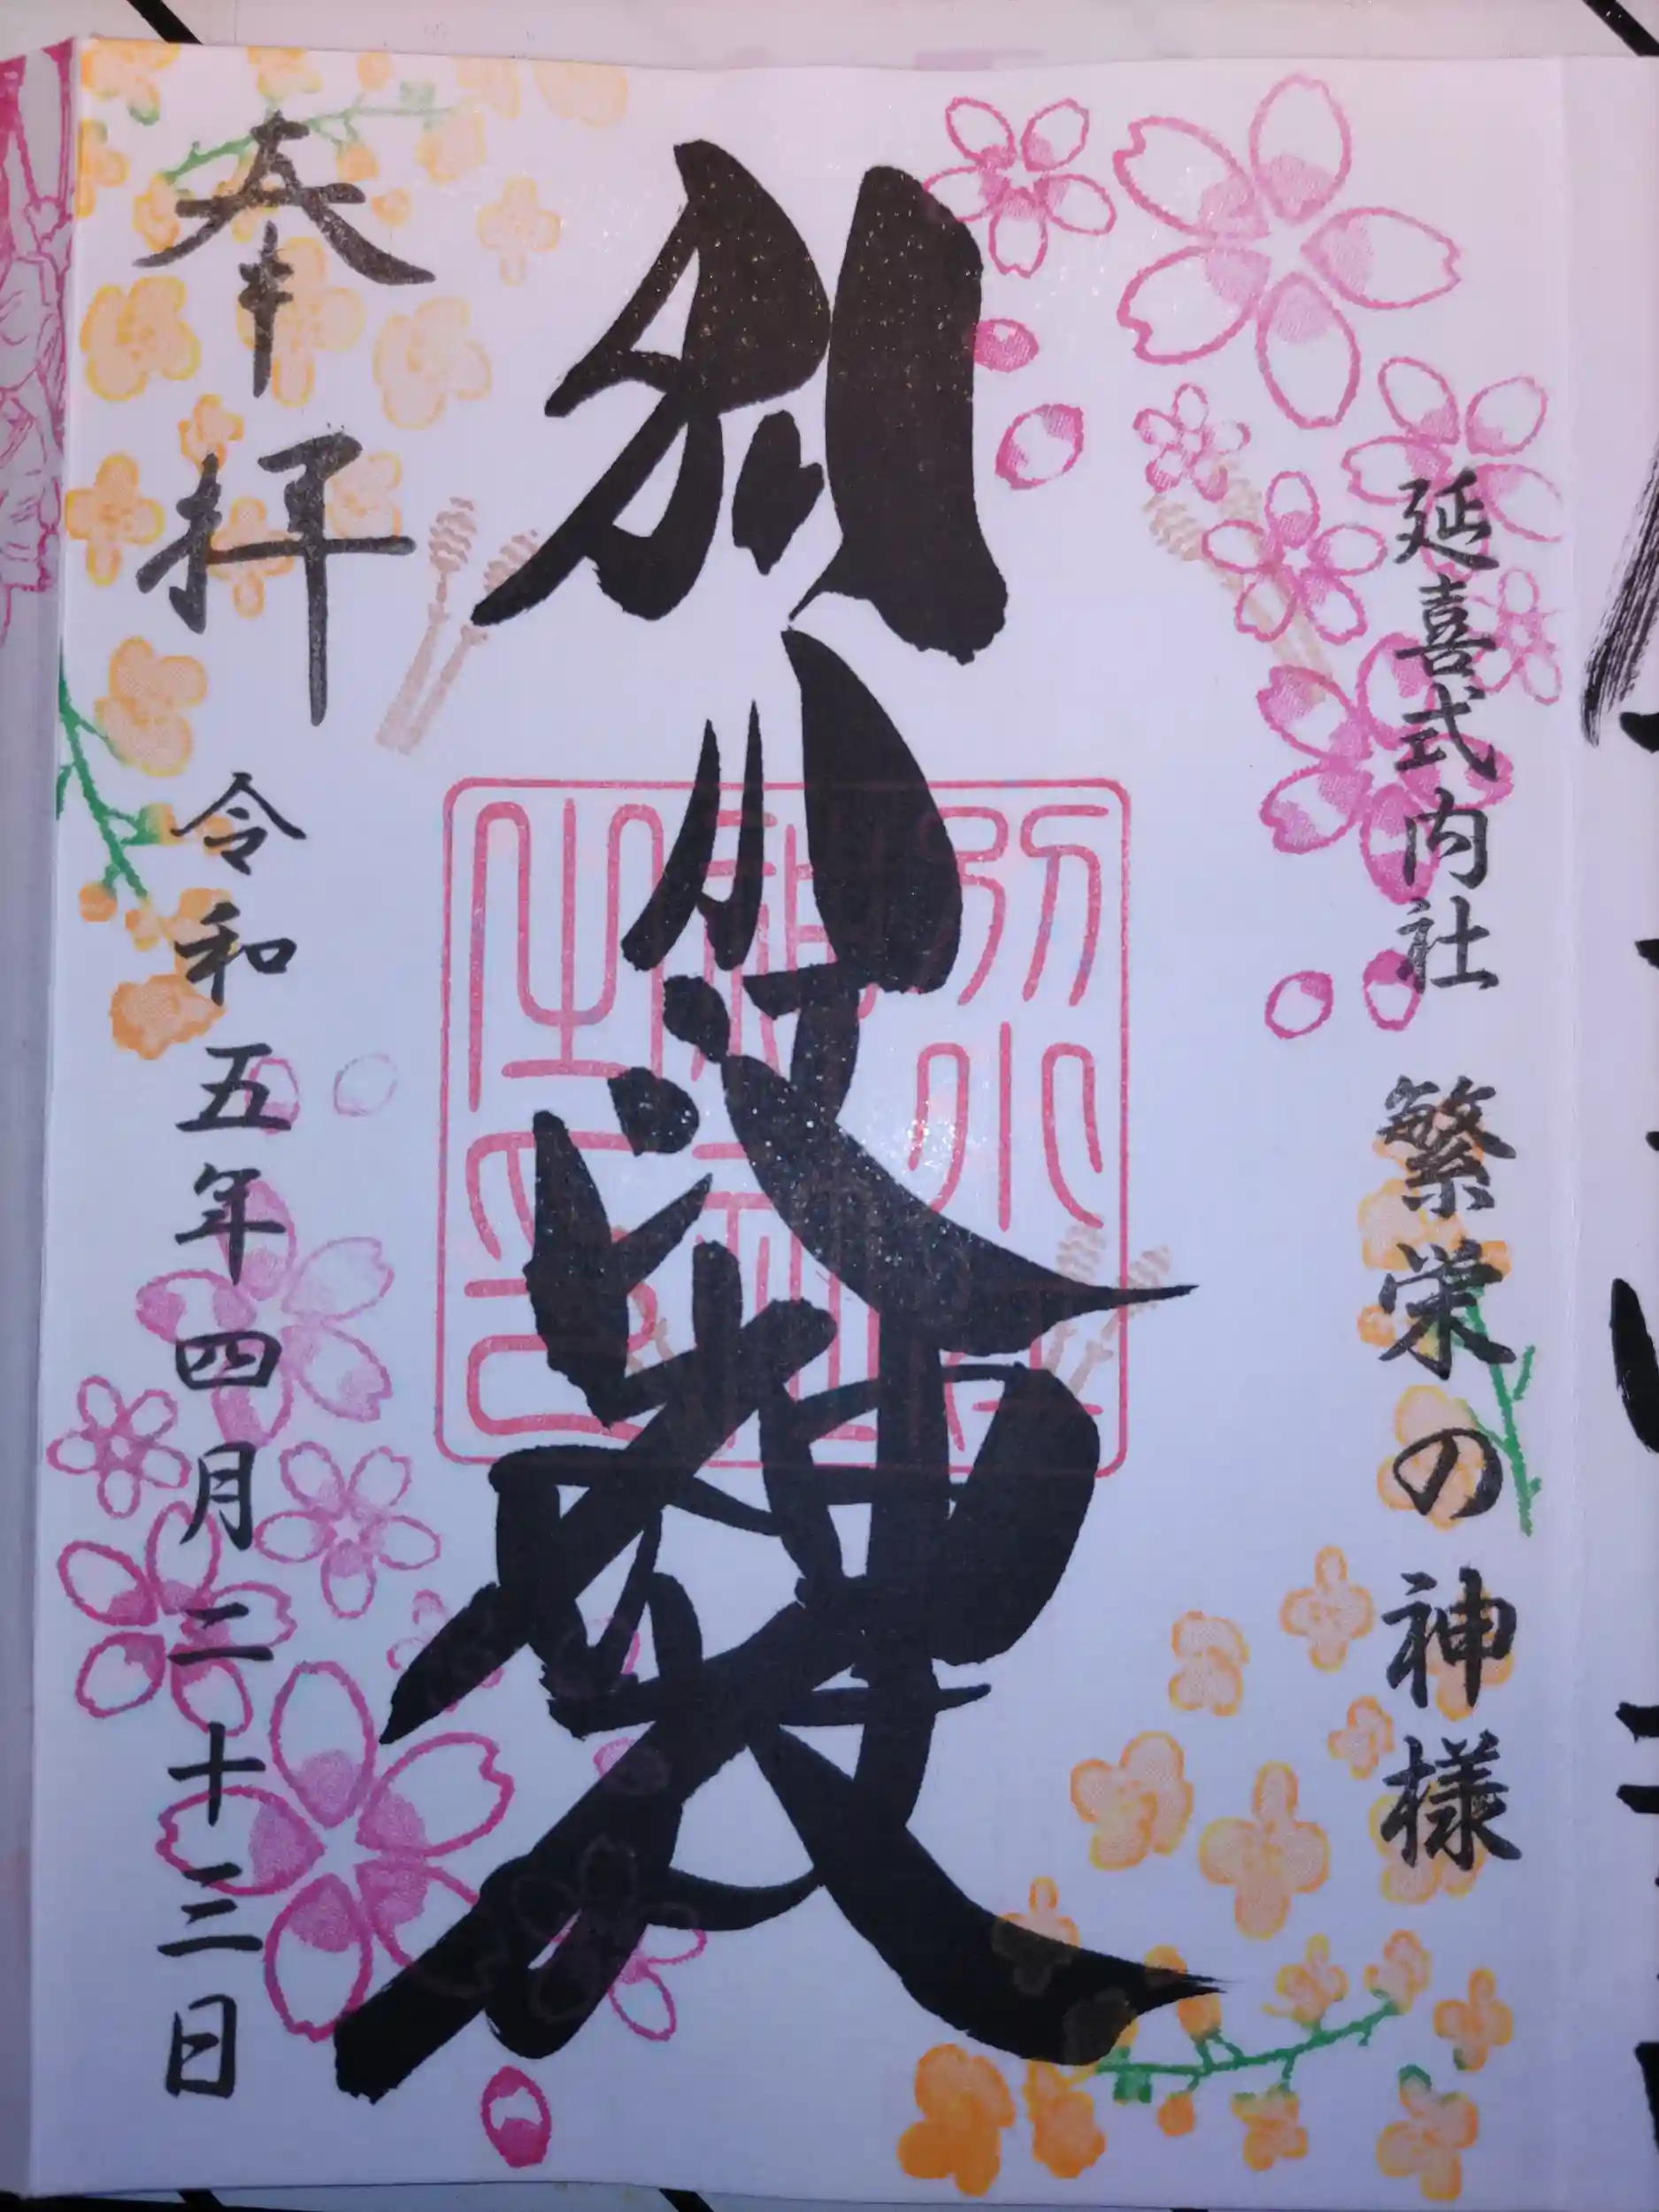 延喜式内社 繁栄の神様
別小江神社
別小江神社之印
奉拝 令和五年四月二十三日